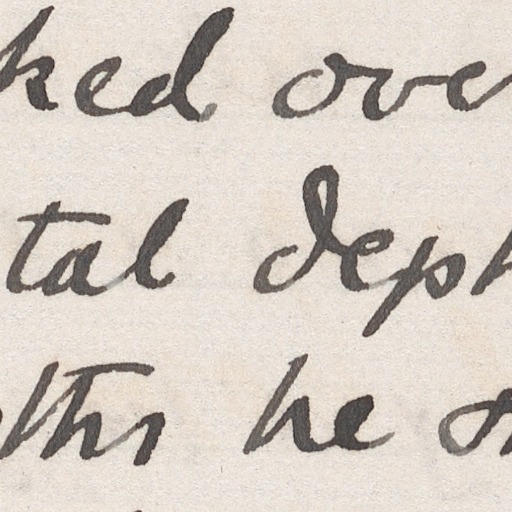 ked over
tal dept
ths he s